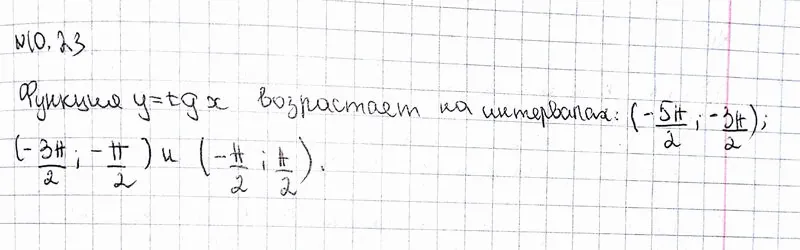 N10.23
Функция y=tg x возрастает на интервалах: (-5π/2; -3π/2);
(-3π/2; -π/2) и (-π/2; π/2).